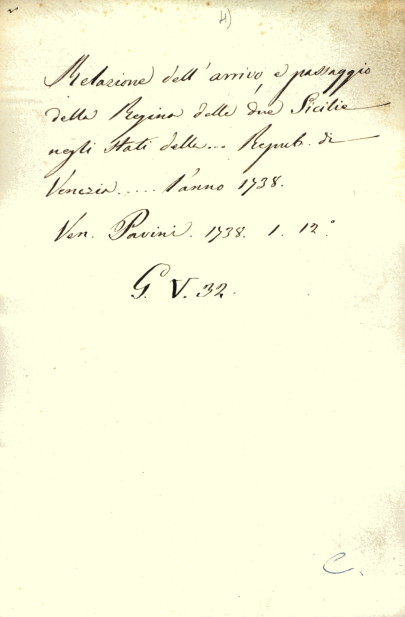 4)
Relazione dell' arrivo, e passaggio
della Regina delle due Sicilie
negli Stati della... Repub. di
Venezia..... l'anno 1738.
Ven. Pavini. 1738. 1. 12.°
G. V. 32.
C.